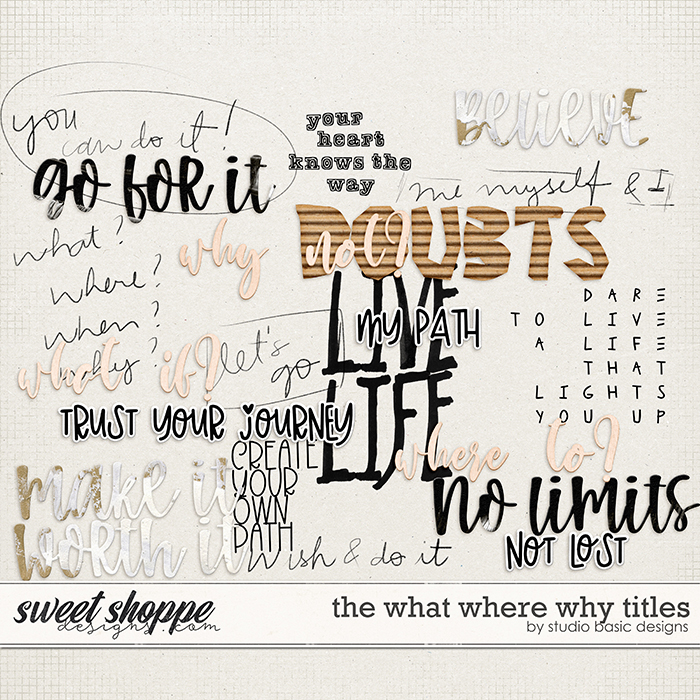 you
can do it!
go for it
your
heart
knows the
way
Believe
me myself & I
what?
where?
when?
why?
why not?
DOUBTS
LIVE
LIFE
MY PATH
DARE
TO LIVE
A LIFE
THAT
LIGHTS
YOU UP
what if?
let's
go
TRUST YOUR JOURNEY
where to?
make it
worth it
CREATE
YOUR
OWN
PATH
No limits
NOT LOST
Wish & do it
sweet shoppe
designs.com
the what where why titles
by studio basic designs